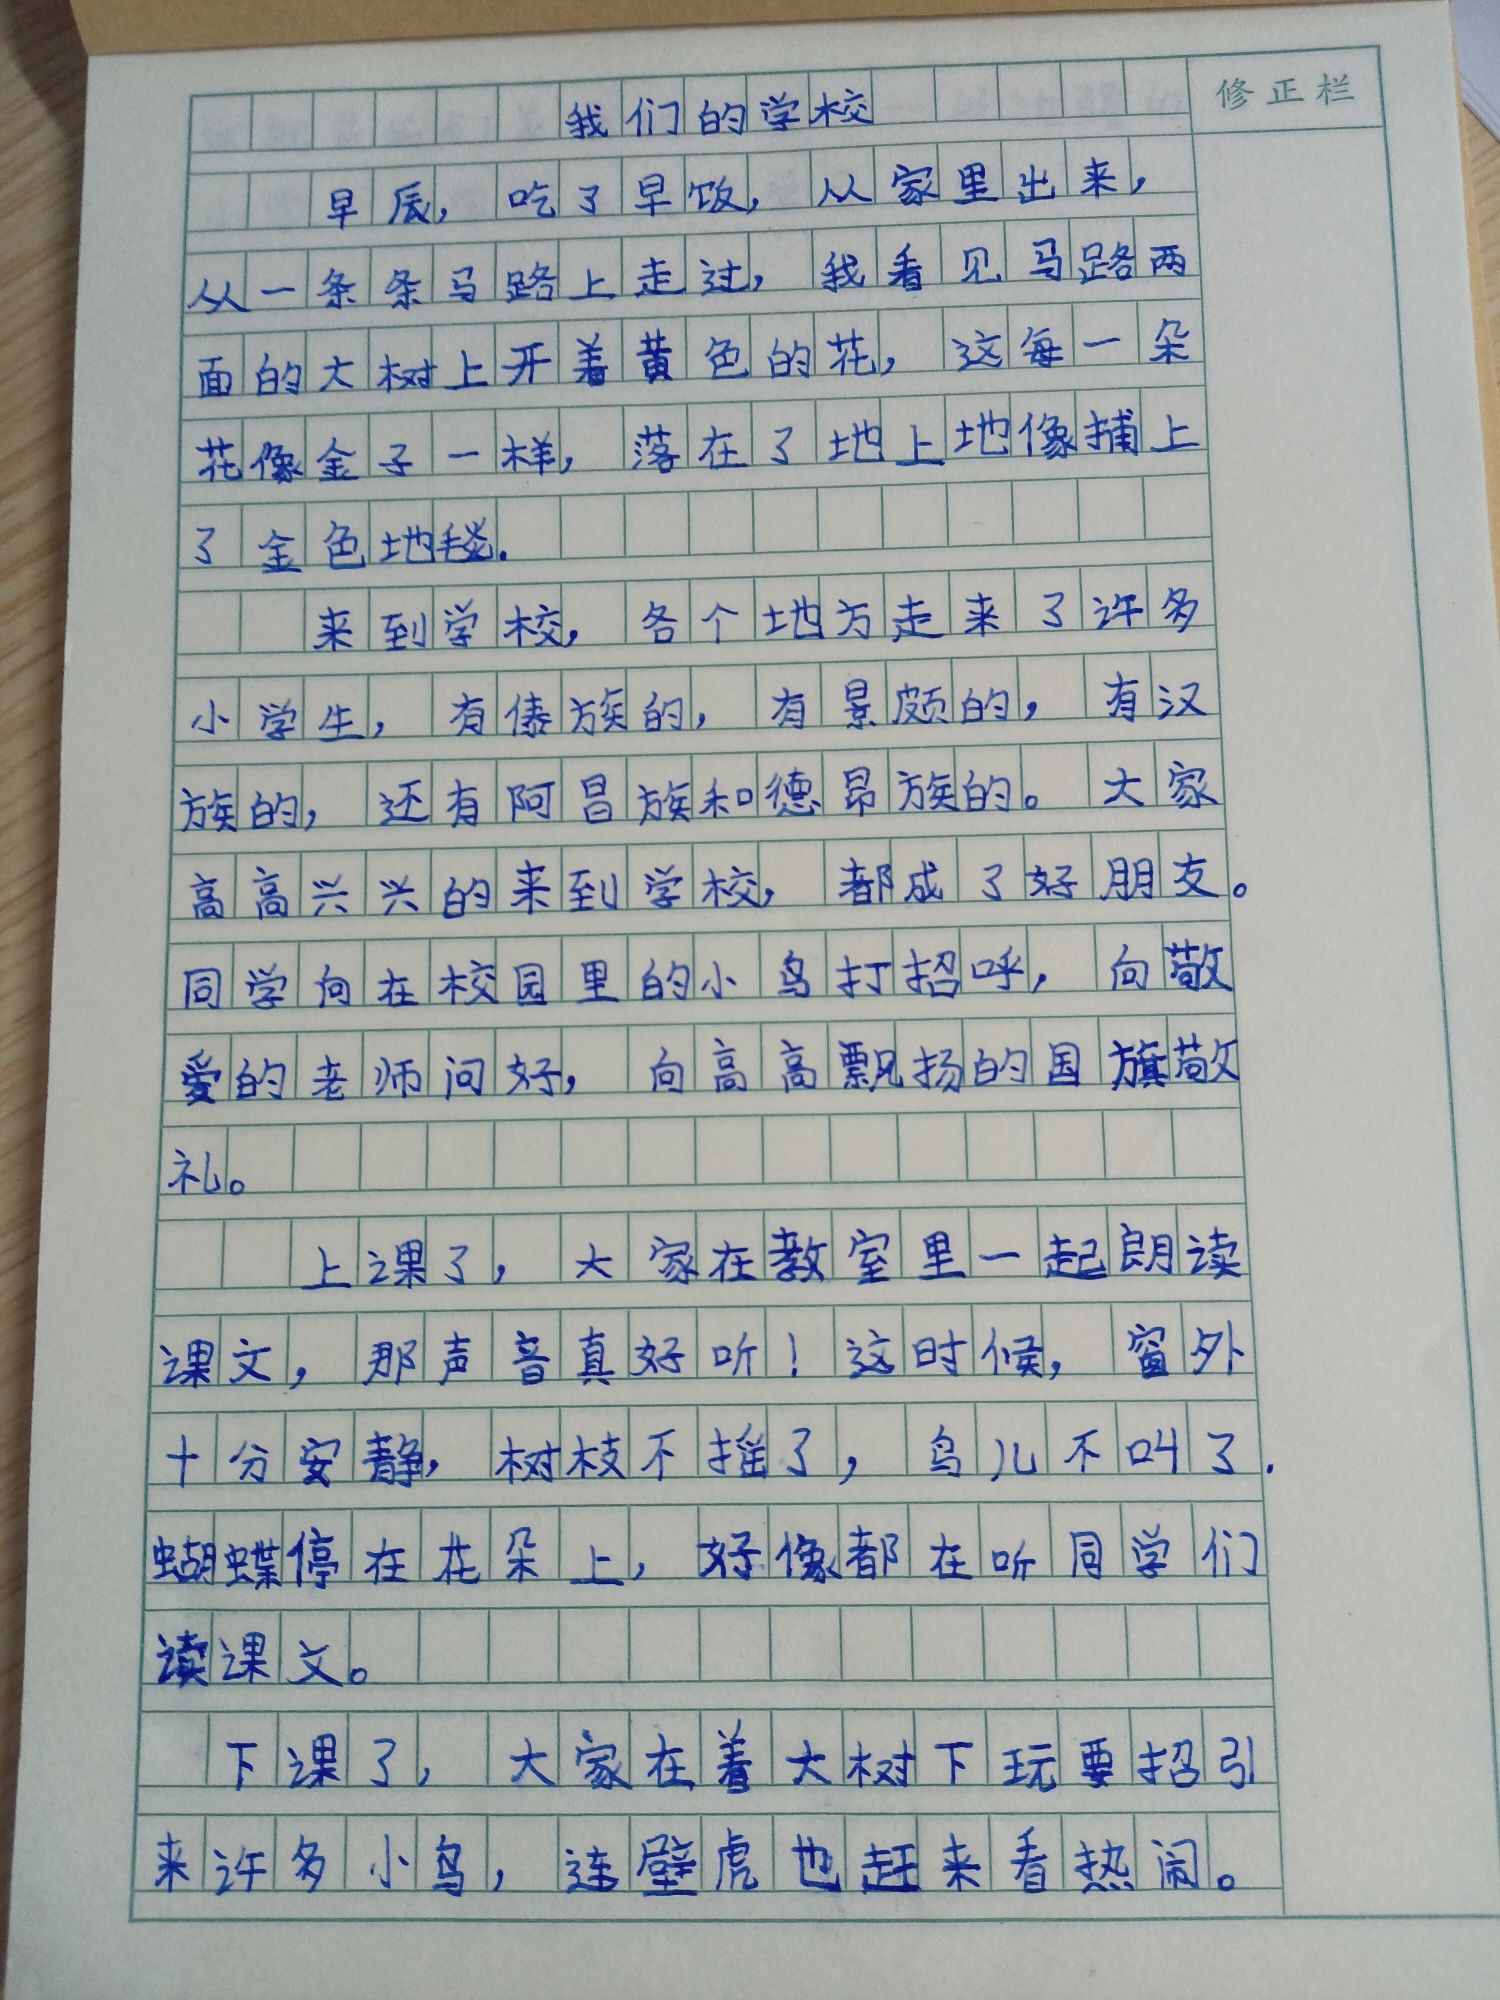 修正栏
我们的学校
早辰，吃了早饭，从家里出来，
从一条条马路上走过，我看见马路两
面的大树上开着黄色的花，这每一朵
花像金子一样，落在了地上地像捕上
了金色地毯.
来到学校，各个地方走来了许多
小学生，有傣族的，有景颇的，有汉
族的，还有阿昌族和德昂族的。大家
高高兴兴的来到学校，都成了好朋友。
同学向在校园里的小鸟打招呼，向敬
爱的老师问好，向高高飘扬的国旗敬
礼。
上课了，大家在教室里一起朗读
课文，那声音真好听！这时候，窗外
十分安静，树枝不摇了，鸟儿不叫了.
蝴蝶停在花朵上，好像都在听同学们
读课文。
下课了，大家在着大树下玩要招引
来许多小鸟，连壁虎也赶来看热闹。